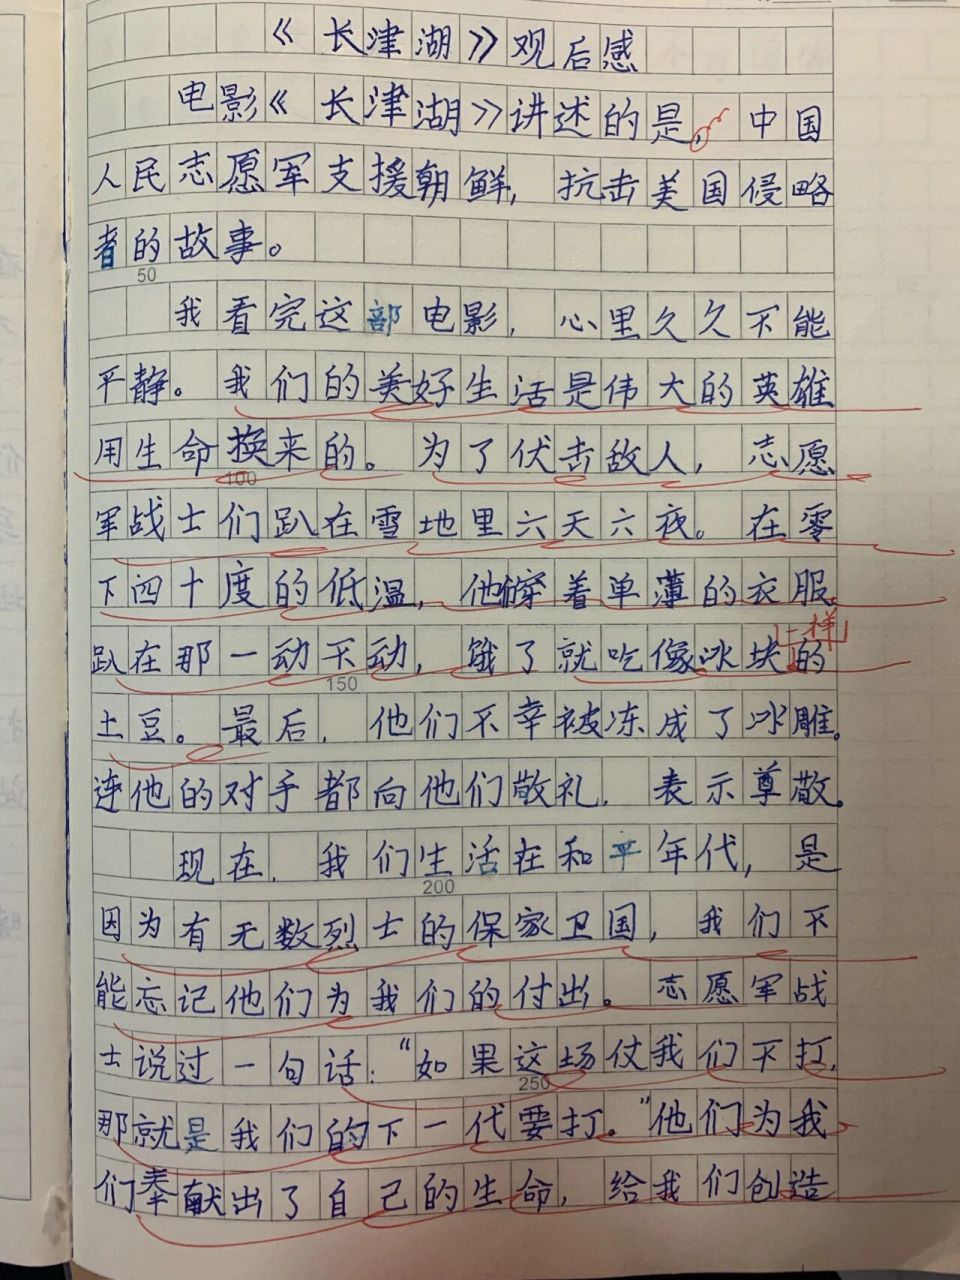 《长津湖》观后感
电影《长津湖》讲述的是，中国
人民志愿军支援朝鲜，抗击美国侵略
者的故事。
50
我看完这部电影，心里久久不能
平静。我们的美好生活是伟大的英雄
用生命换来的。为了伏击敌人，志愿
100
军战士们趴在雪地里六天六夜。在零
下四十度的低温，他们穿着单薄的衣服
一样
趴在那一动不动，饿了就吃像冰块的
150
土豆。最后，他们不幸被冻成了冰雕。
连他的对手都向他们敬礼，表示尊敬。
现在，我们生活在和平年代，是
200
因为有无数烈士的保家卫国，我们不
能忘记他们为我们的付出。志愿军战
士说过一句话：“如果这场仗我们不打，
250
那就是我们的下一代要打。”他们为我
们奉献出了自己的生命，给我们创造